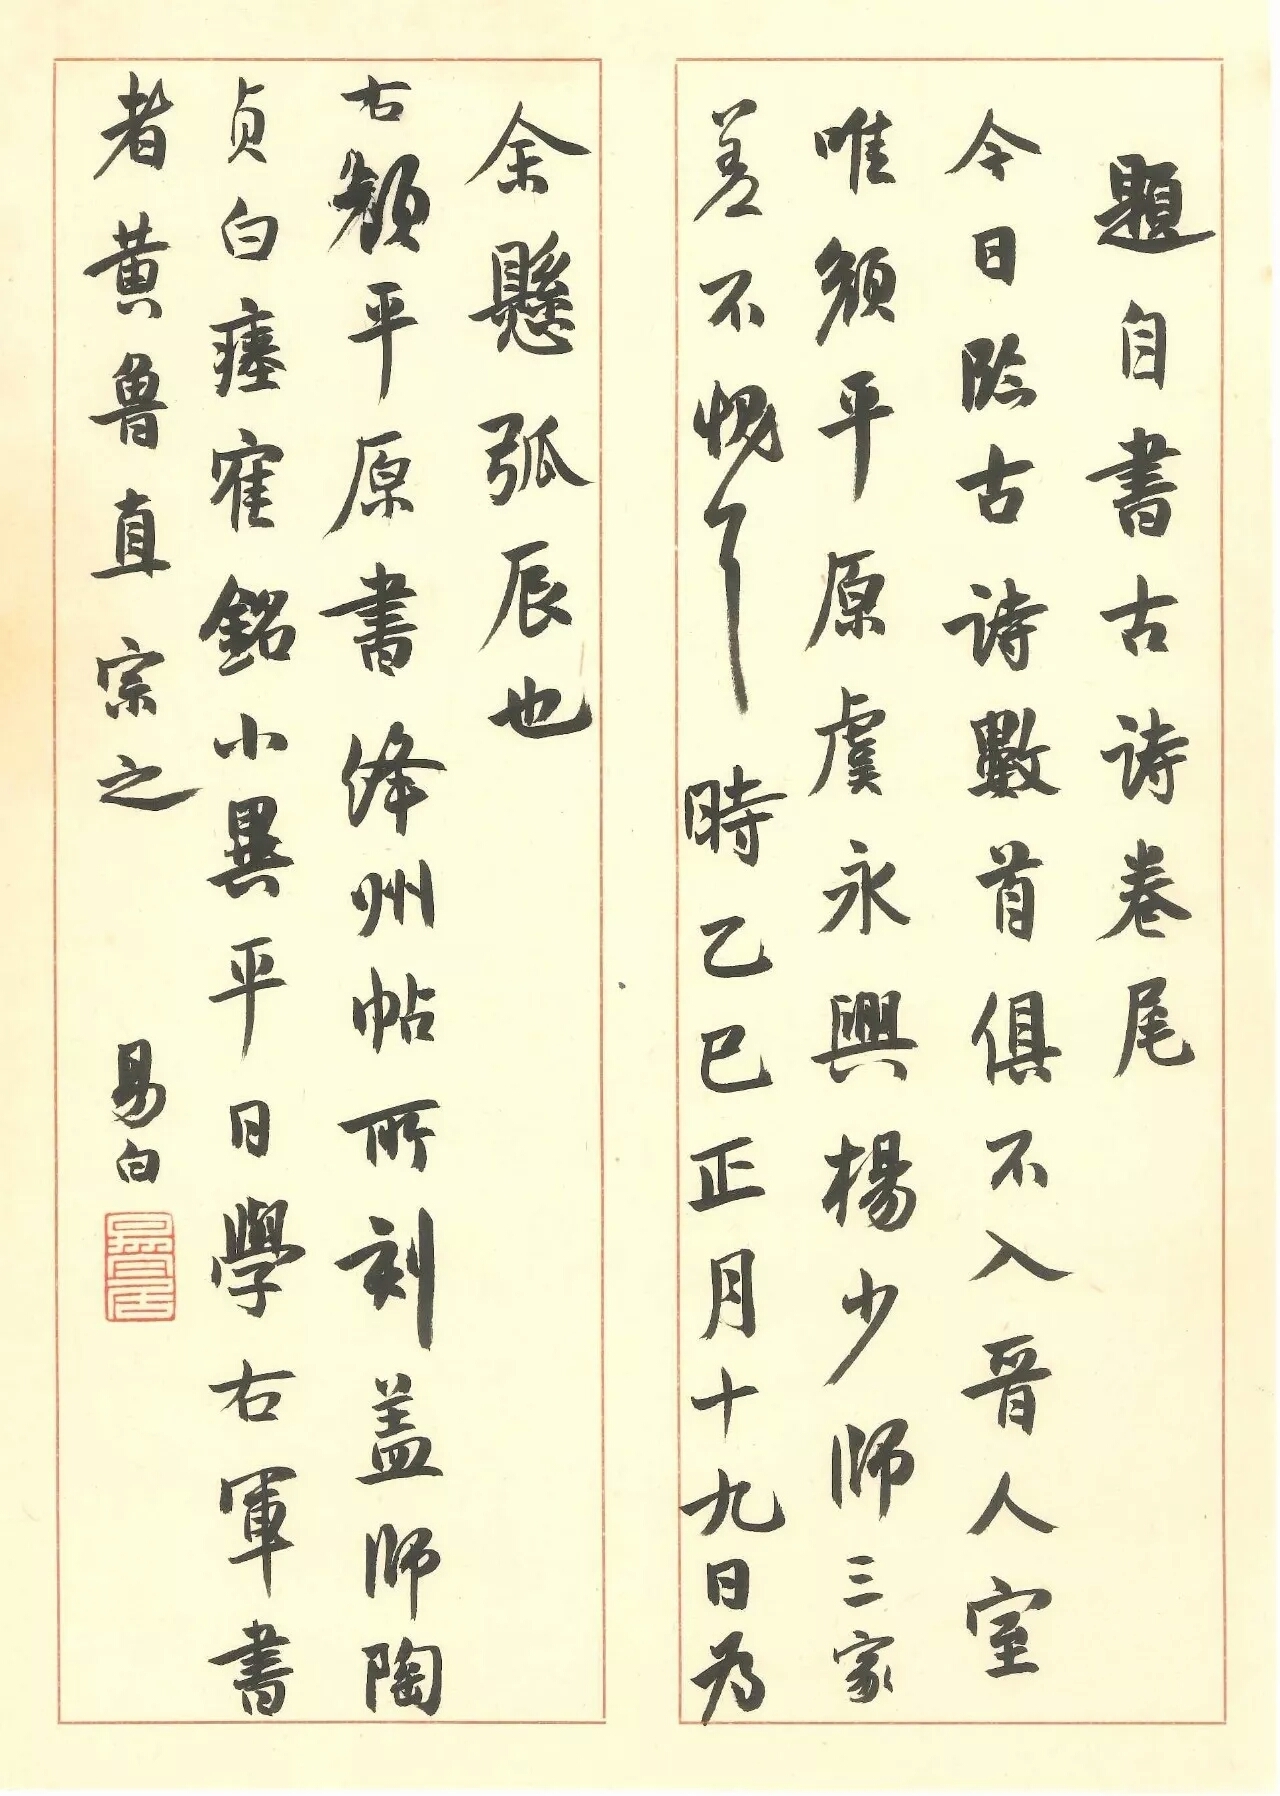 題自書古诗卷尾
今日臨古诗數首俱不入晉人室
唯顏平原虞永興楊少师三家
差不愧耳 時乙巳正月十九日为
余懸弧辰也
右顏平原書絳州帖所刻盖师陶
貞白瘞寉銘小異平日學右軍書
者黄魯直宗之
易白